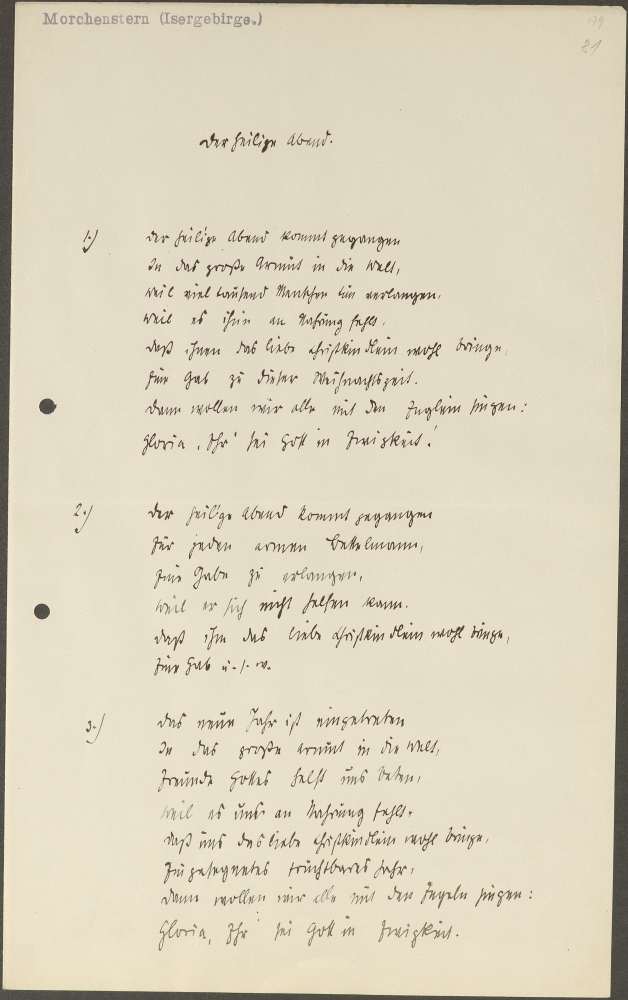 Morchenstern (Isergebirge.)
81
Der heilige Abend.
1.) Der heilige Abend kommt gegangen
In das große Armut in die Welt,
weil viel tausend Menschen tun verlangen,
weil es ihnen an Nahrung fehlt.
daß ihnen das liebe Christkindlein wohl bringe,
Eine Gab zu dieser Weihnachtszeit.
Dann wollen wir alle mit den Englein singen:
Gloria, Ehr' sei Gott in Ewigkeit!
2.) Der heilige Abend kommt gegangen
Für jeden armen Bettelmann,
Eine Gabe zu erlangen,
weil er sich nicht helfen kann.
daß ihm das liebe Christkindlein wohl bringe,
Eine Gab u. s. w.
3.) Das neue Jahr ist eingetreten
In das große Armut in die Welt,
Freunde Gottes helft uns beten,
weil es uns an Nahrung fehlt.
daß uns das liebe Christkindlein wohl bringe,
Ein gesegnetes fruchtbares Jahr,
dann wollen wir alle mit den Engeln singen:
Gloria, Ehr' sei Gott in Ewigkeit.